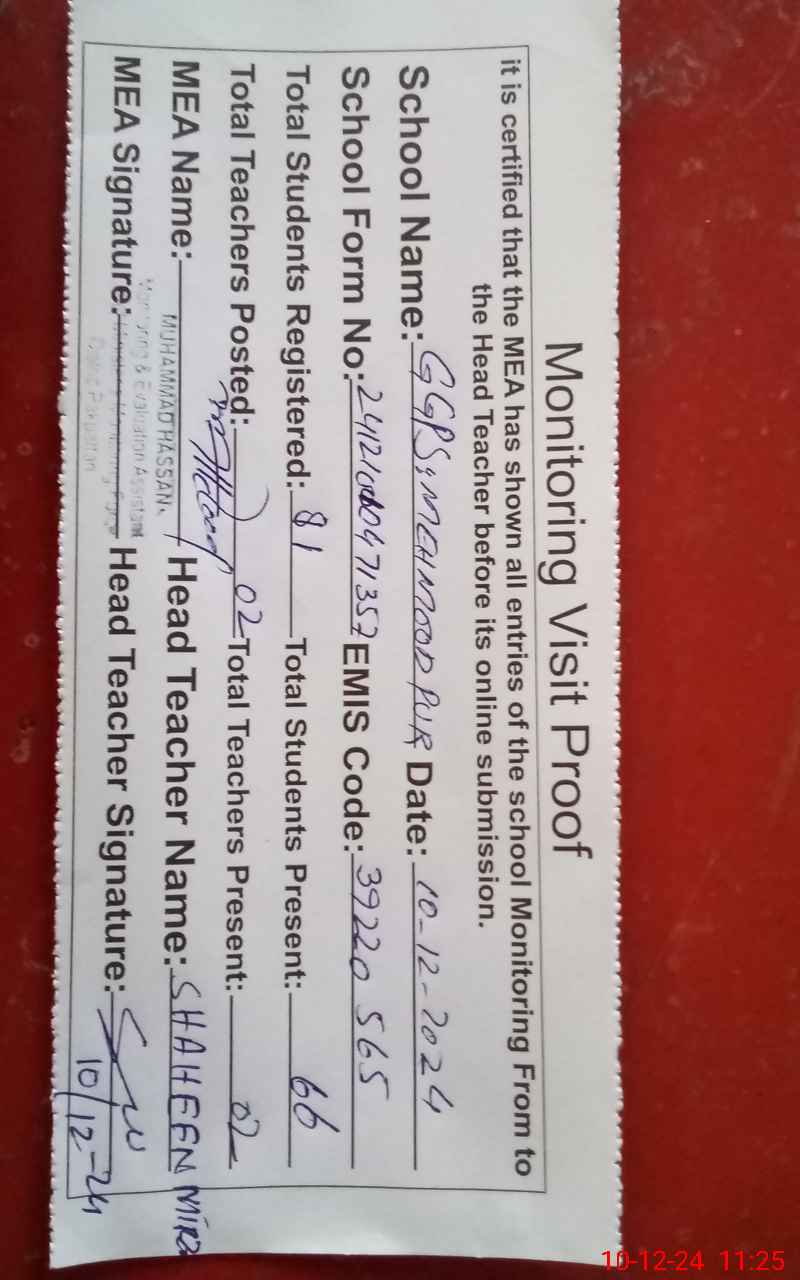 Monitoring Visit Proof
it is certified that the MEA has shown all entries of the school Monitoring From to
the Head Teacher before its online submission.
School Name: GGPS, MEHMOOD PUR Date: 10-12-2024
School Form No: EMIS Code: 39220565
Total Students Registered: 81 Total Students Present: 66
Total Teachers Posted: 02 Total Teachers Present: 02
MEA Name: MUHAMMAD HASSAN Head Teacher Name: SHAHEEN
Monitoring & Evaluation Assistant
MEA Signature: Head Teacher Signature:
District Pakpattan
10/12-24
10-12-24 11:25